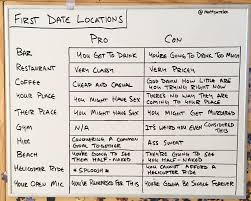 FIRST DATE LOCATIONS
PRO CON
BAR YOU GET TO DRINK YOU'RE GOING TO DRINK TOO MUCH
RESTAURANT VERY CLASSY VERY PRICEY
COFFEE CHEAP AND CASUAL GOD DAMN HOW LITTLE ARE YOU TRYING RIGHT NOW
YOUR PLACE YOU MIGHT HAVE SEX THERE'S NO WAY THEY ARE COMING TO YOUR PLACE
THEIR PLACE YOU MIGHT HAVE SEX YOU MIGHT GET MURDERED
GYM N/A IT'S WEIRD YOU EVEN CONSIDERED THIS
HIKE CONQUERING A COMMON GOAL TOGETHER ASS SWEAT
BEACH YOU'RE GOING TO SEE THEM HALF-NAKED THEY'RE GOING TO SEE YOU HALF-NAKED
HELICOPTER RIDE *SPLOOSH* YOU CANNOT AFFORD A HELICOPTER RIDE
YOUR OPEN MIC YOU'RE FAMOUS FOR THIS YOU'RE GOING TO BE SINGLE FOREVER